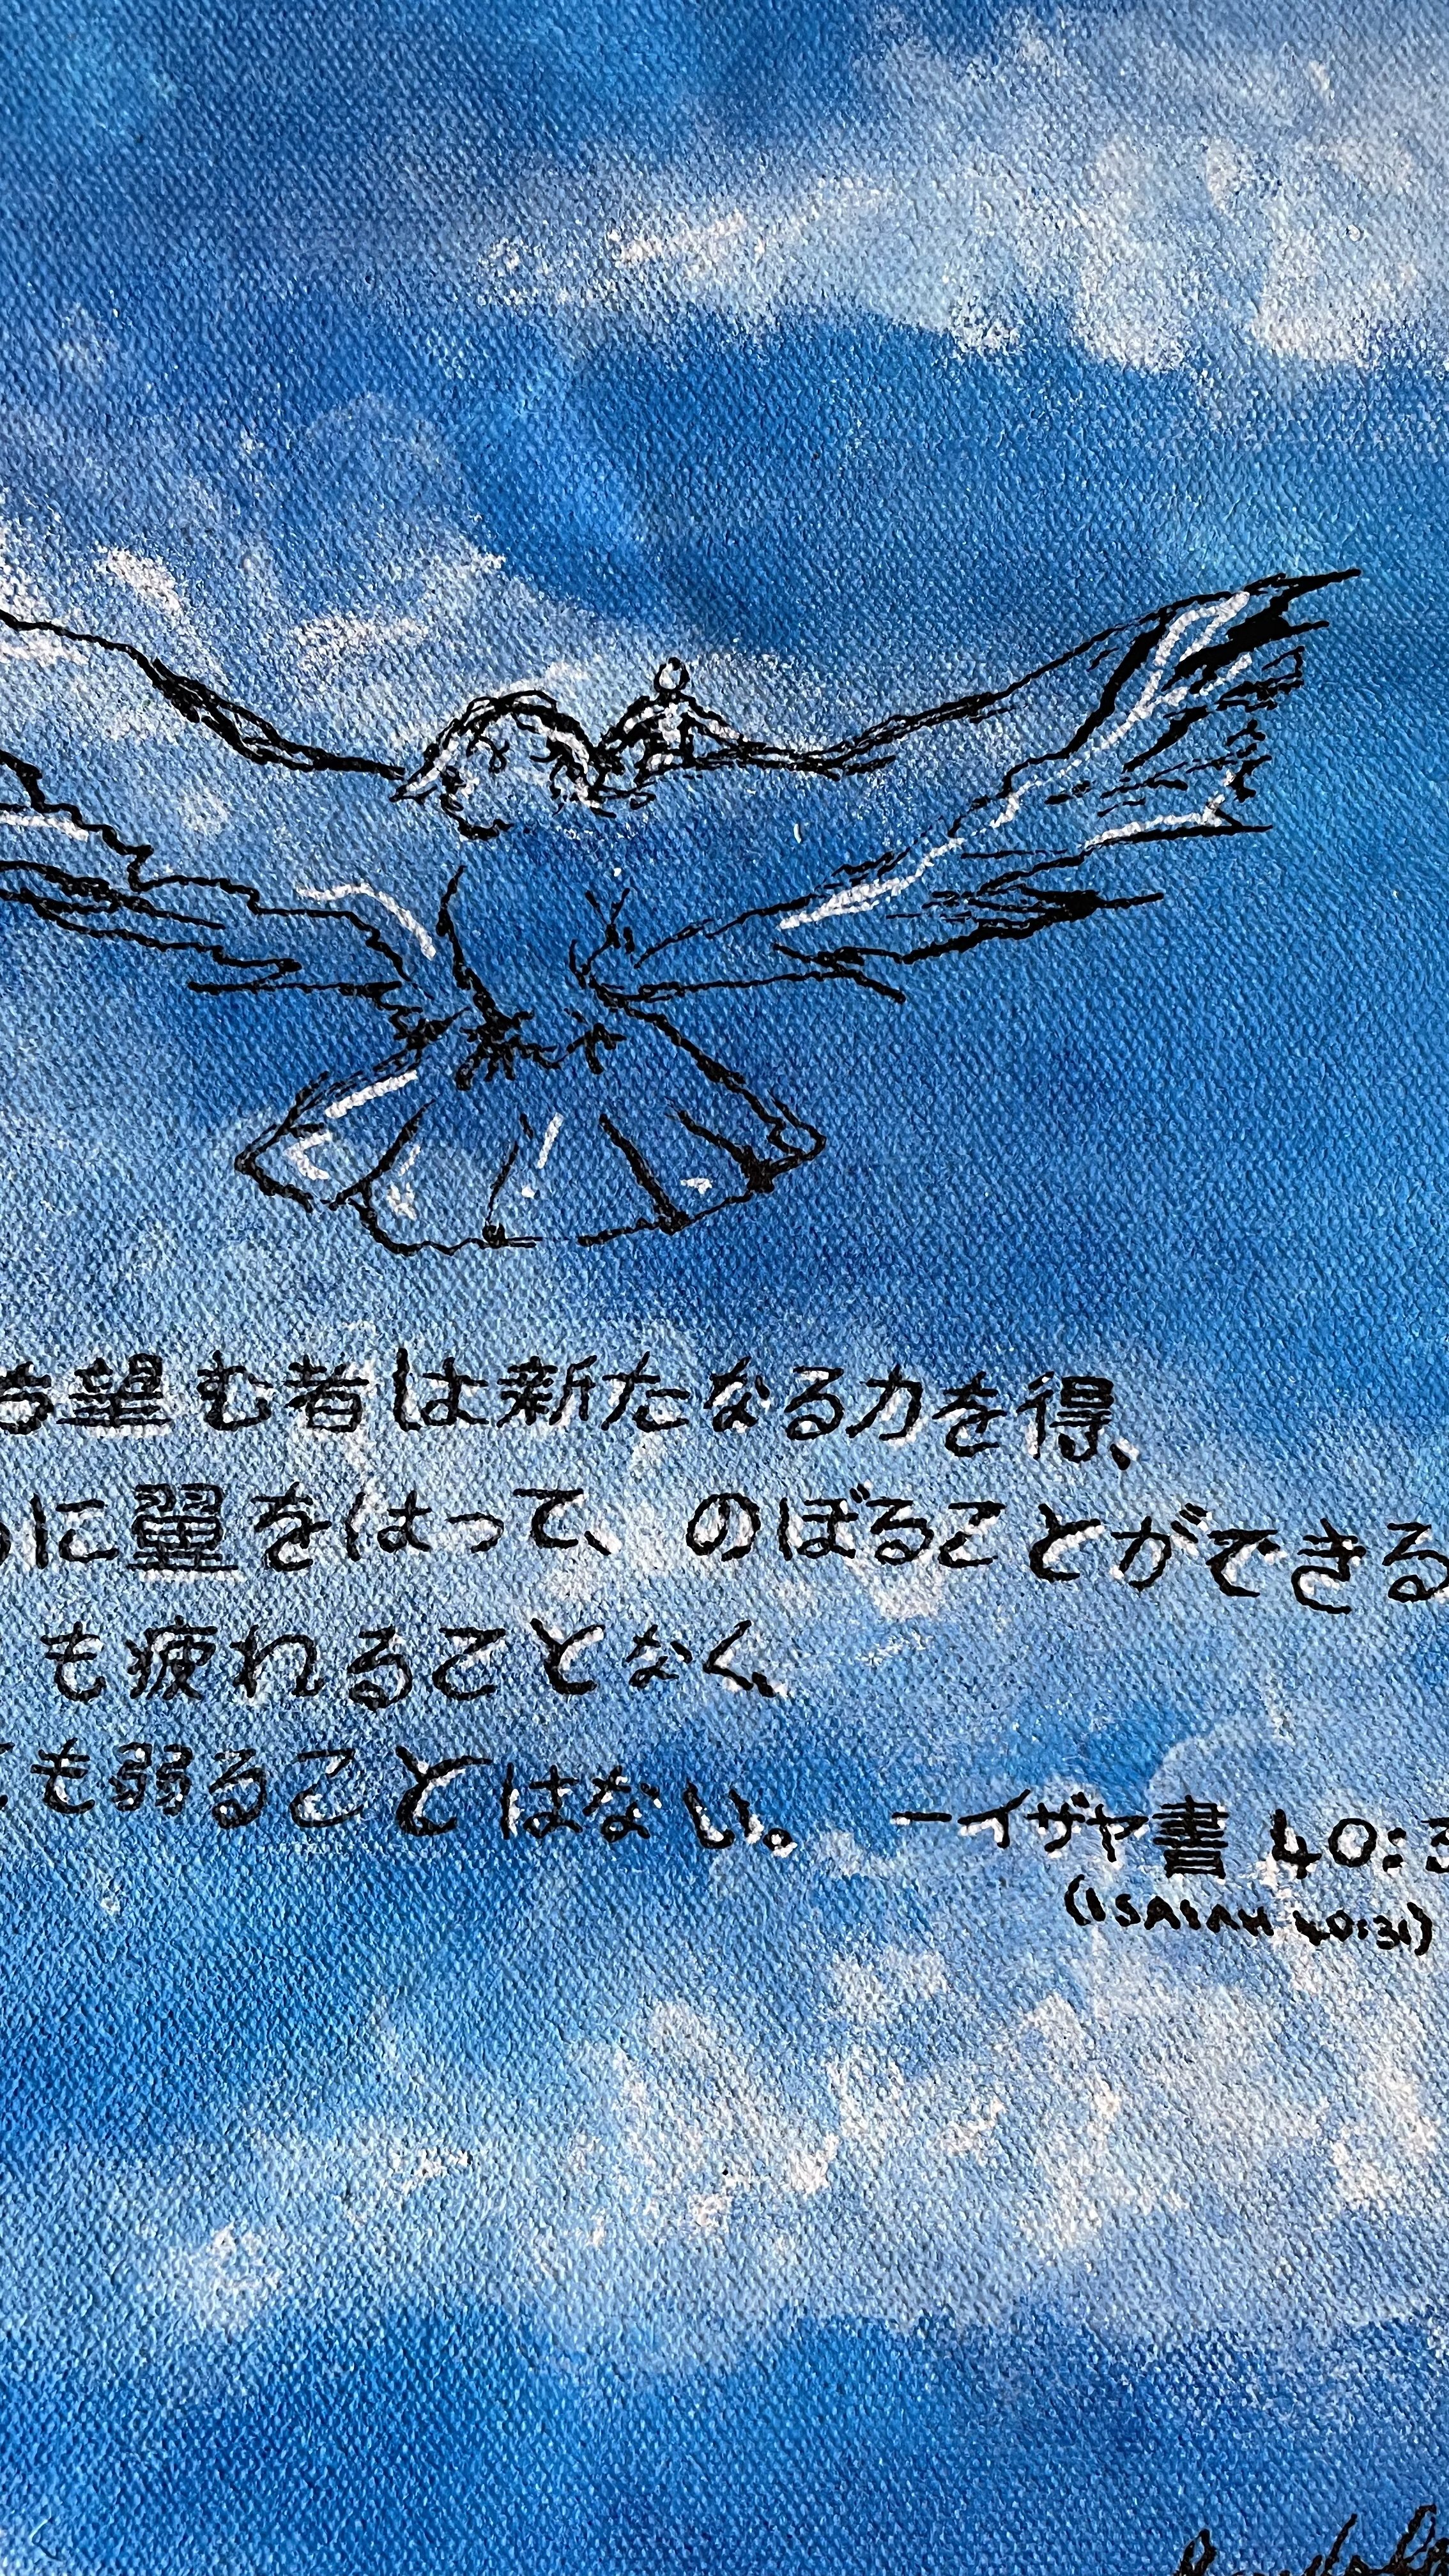 ち望む者は新たなる力を得、
に翼をはって、のぼることができる
も疲れることなく、
も弱ることはない。 ーイザヤ書 40:3
(ISAIAH 40:31)